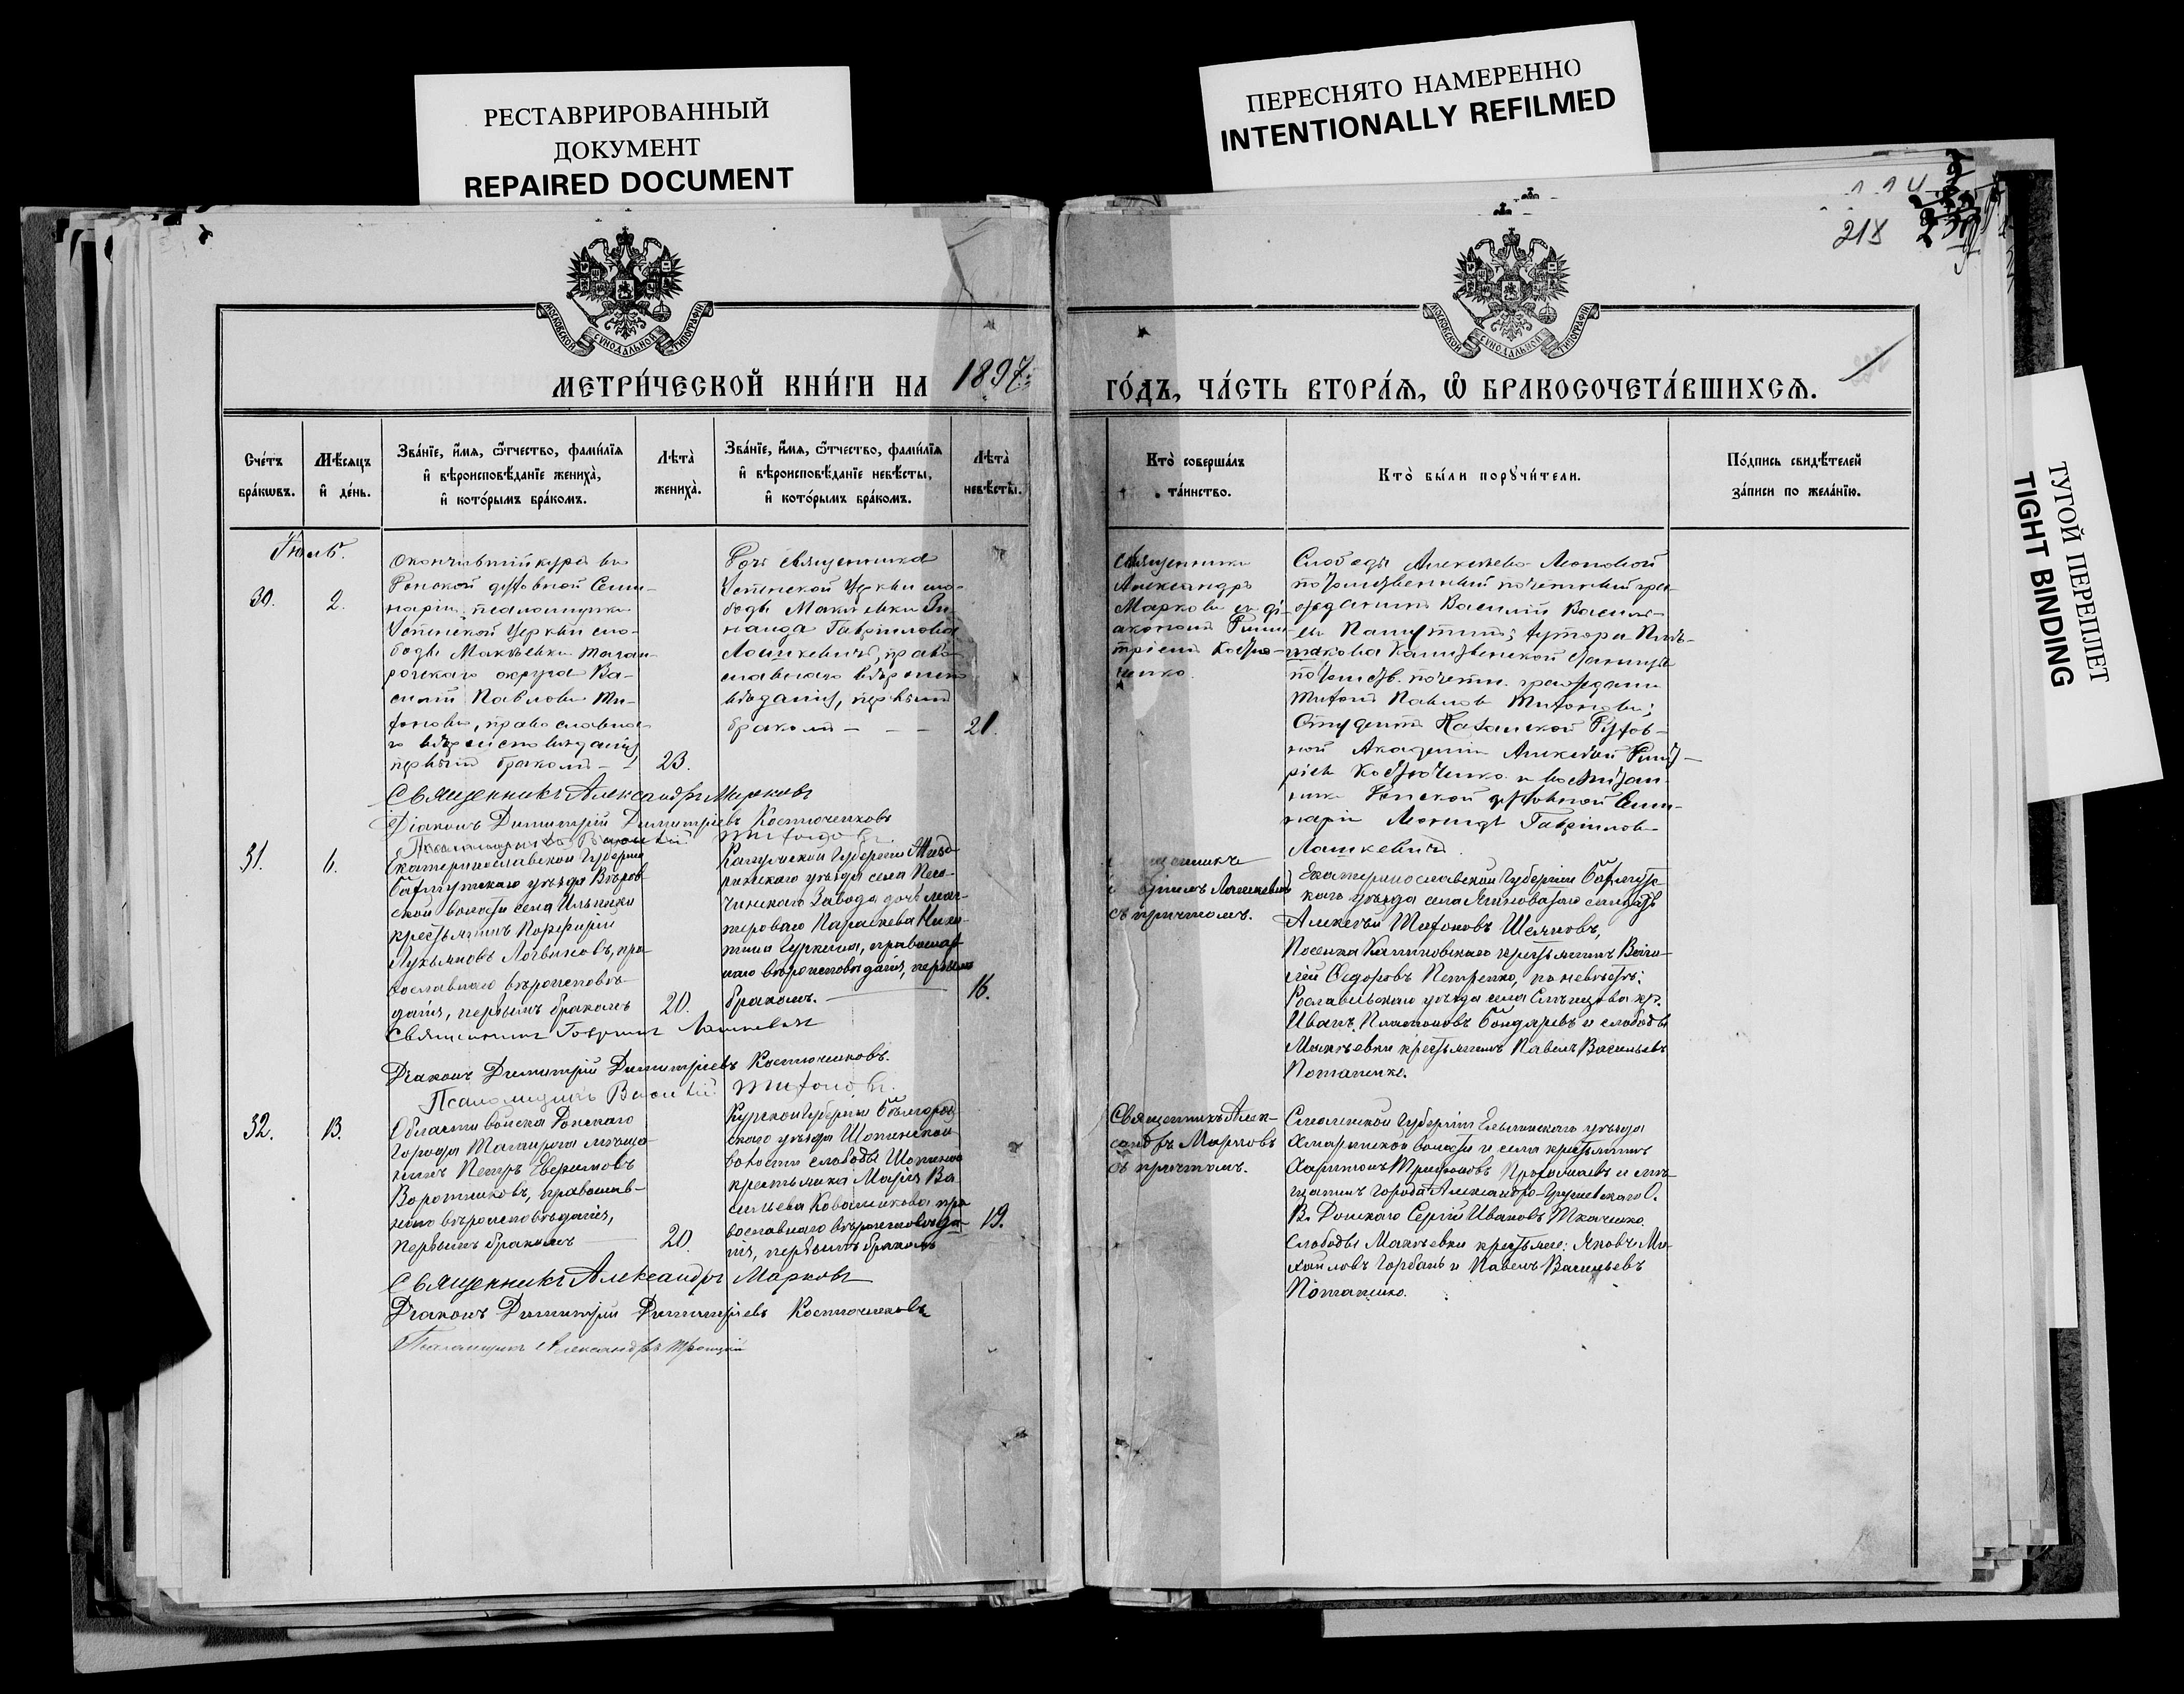 РЕСТАВРИРОВАННЫЙ
ДОКУМЕНТ
REPAIRED DOCUMENT
ПЕРЕСНЯТО НАМЕРЕННО
INTENTIONALLY REFILMED
ТУГОЙ ПЕРЕПЛЕТ
TIGHT BINDING
218
МОСКОВСКОЙ СУНОДАЛЬНОЙ ТИПОГРАФІИ
МОСКОВСКОЙ СУНОДАЛЬНОЙ ТИПОГРАФІИ
МЕТРИ́ЧЕСКОЙ КНИ́ГИ НА 1897
ГО́ДЪ, ЧА́СТЬ ВТОРА́Я, Ѡ БРАКОСОЧЕТА́ВШИХСЯ.
Сче́тъ
бра́кѡвъ.
Мѣ́сяцъ
и҆ де́нь.
Зва́нїе, и҆́мя, ѻ҆́тчество, фами́лїя
и҆ вѣроисповѣ́данїе жениха̀,
и҆ кото́рымъ бра́комъ.
Лѣта̀
жениха̀.
Зва́нїе, и҆́мя, ѻ҆́тчество, фами́лїя
и҆ вѣроисповѣ́данїе невѣ́сты,
и҆ кото́рымъ бра́комъ.
Лѣта̀
невѣ́сты.
Кто̀ соверша́лъ
та́инство.
Кто̀ бы́ли порꙋчи́тели.
По́дпись свидѣ́телей
за́писи по жела́нїю.
Іюль.
30.
2.
Окончившій курсъ въ
Донской духовной Семи-
наріи, псаломщикъ
Успенской Церкви сло-
боды Макѣевки Таган-
рогскаго округа Ва-
силій Павловъ Ти-
хоновъ, православна-
го вѣроисповѣданія
первымъ бракомъ
23.
Дочь священника
Успенской Церкви сло-
боды Макѣевки Зи-
наида Гавріилова
Лашкевичъ, право-
славнаго вѣроиспо-
вѣданія, первымъ
бракомъ
21.
Священникъ
Александръ
Марковъ съ ді-
акономъ Дими-
тріемъ Костю-
ченко.
Слободы Алексѣево-Леоновой
потомственный почетный граж-
данинъ Василій Василь-
евъ
потомств. почетн. гражданинъ
Тихонъ Павловъ Тихоновъ;
Студентъ Казанской Духов-
ной Академіи Алексѣй Дими-
ріевъ Костюченко и воспитан-
никъ Донской духовной Семи-
наріи Леонидъ Гавріиловъ
Лашкевичъ.
Священникъ Александръ Марковъ
Діаконъ Димитрій Димитріевъ Костюченковъ
Псаломщикъ Василій Тихоновъ
31.
6.
Екатеринославской Губерніи
Бахмутскаго уѣзда Вѣров-
ской волости села Ильинки
крестьянинъ Порфирій
Лукьяновъ Логвиновъ, пра-
вославнаго вѣроисповѣ-
данія, первымъ бракомъ
20.
Калужской Губерніи Жизд-
ринскаго уѣзда села Песо-
чинскаго Завода дочь мас-
тероваго Параскева Ники-
тина Гуркина, православ-
наго вѣроисповѣданія, первымъ
бракомъ.
16.
Лашкевичъ
съ причтомъ.
Екатеринославской Губерніи Бахмутс-
каго уѣзда села
Алексѣй Тихоновъ
Поселка Калиновскаго крестьянинъ
Ѳедоровъ Петренко, по невѣстѣ:
Рославльскаго уѣзда села
Иванъ Платоновъ Бондаревъ и слободы
Макѣевки крестьянинъ Павелъ Васильевъ
Потапенко.
Священникъ Гавріилъ Лашкевичъ
Діаконъ Димитрій Димитріевъ Костюченковъ.
Псаломщикъ Василій Тихоновъ.
32.
13.
Области войска Донскаго
Города Таганрога мѣща-
нинъ Петръ
Воротниковъ, православ-
наго вѣроисповѣданія,
первымъ бракомъ
20.
Курской Губерніи Бѣлгород-
скаго уѣзда Шопинской
волости слободы Шопиной
крестьянка Марія Ва-
сильева Ковалькова, пра-
вославнаго вѣроисповѣда-
нія, первымъ бракомъ
19.
Священникъ Алек-
сандръ Марковъ
съ причтомъ.
Смоленской Губерніи Ельнинскаго уѣзда
волости и села крестьянинъ
Харитонъ Трифоновъ и мѣ-
щанинъ города Александро-Грушевскаго О.
В. Донскаго Сергій Ивановъ Ткаченко.
Слободы Макѣевки крестьяне: Яковъ Ми-
хайловъ Горбань и Павелъ Васильевъ
Потапенко.
Священникъ Александръ Марковъ
Діаконъ Димитрій Димитріевъ Костюченковъ
Псаломщикъ Александръ Троицкій